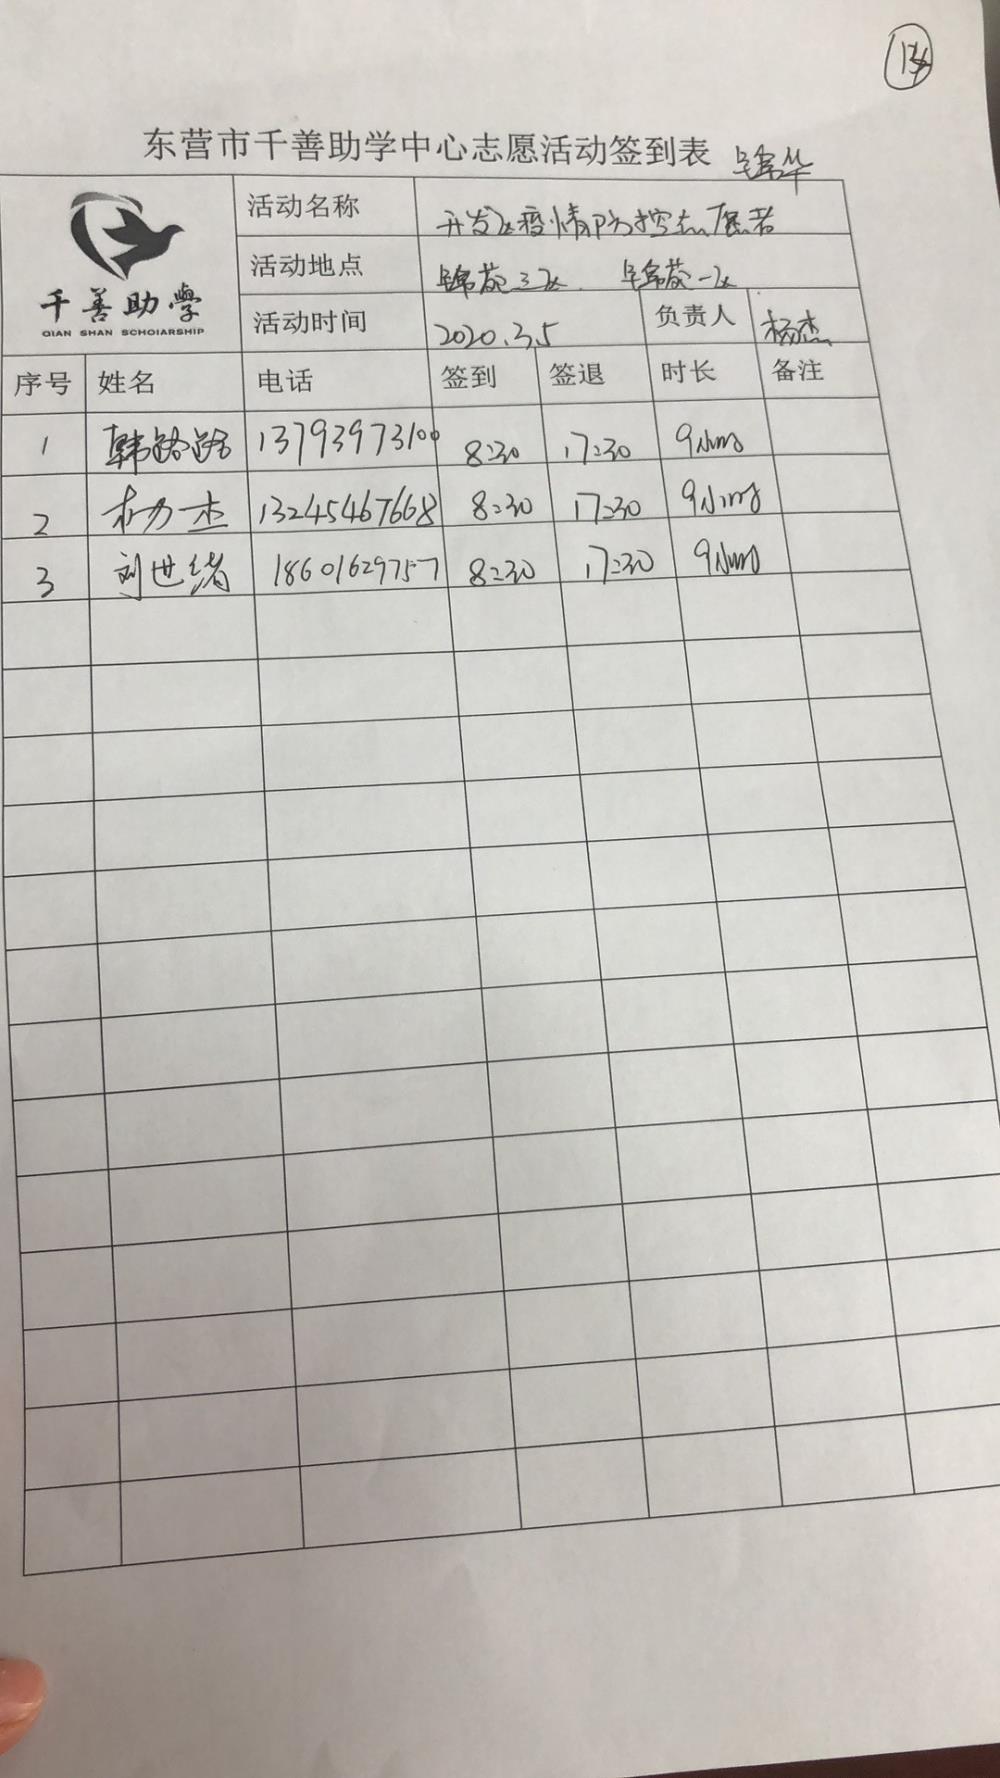 东营市千善助学中心志愿活动签到表 锦华
千善助學
QIAN SHAN SCHOIARSHIP
活动名称 开发区疫情防控志愿者
活动地点 锦苑三区 锦苑一区
活动时间 2020.3.5 负责人 杨杰
序号 姓名 电话 签到 签退 时长 备注
1 韩路路 13793973100 8:30 17:30 9小时
2 杨杰 13245467668 8:30 17:30 9小时
3 刘世绪 18601629757 8:30 17:30 9小时